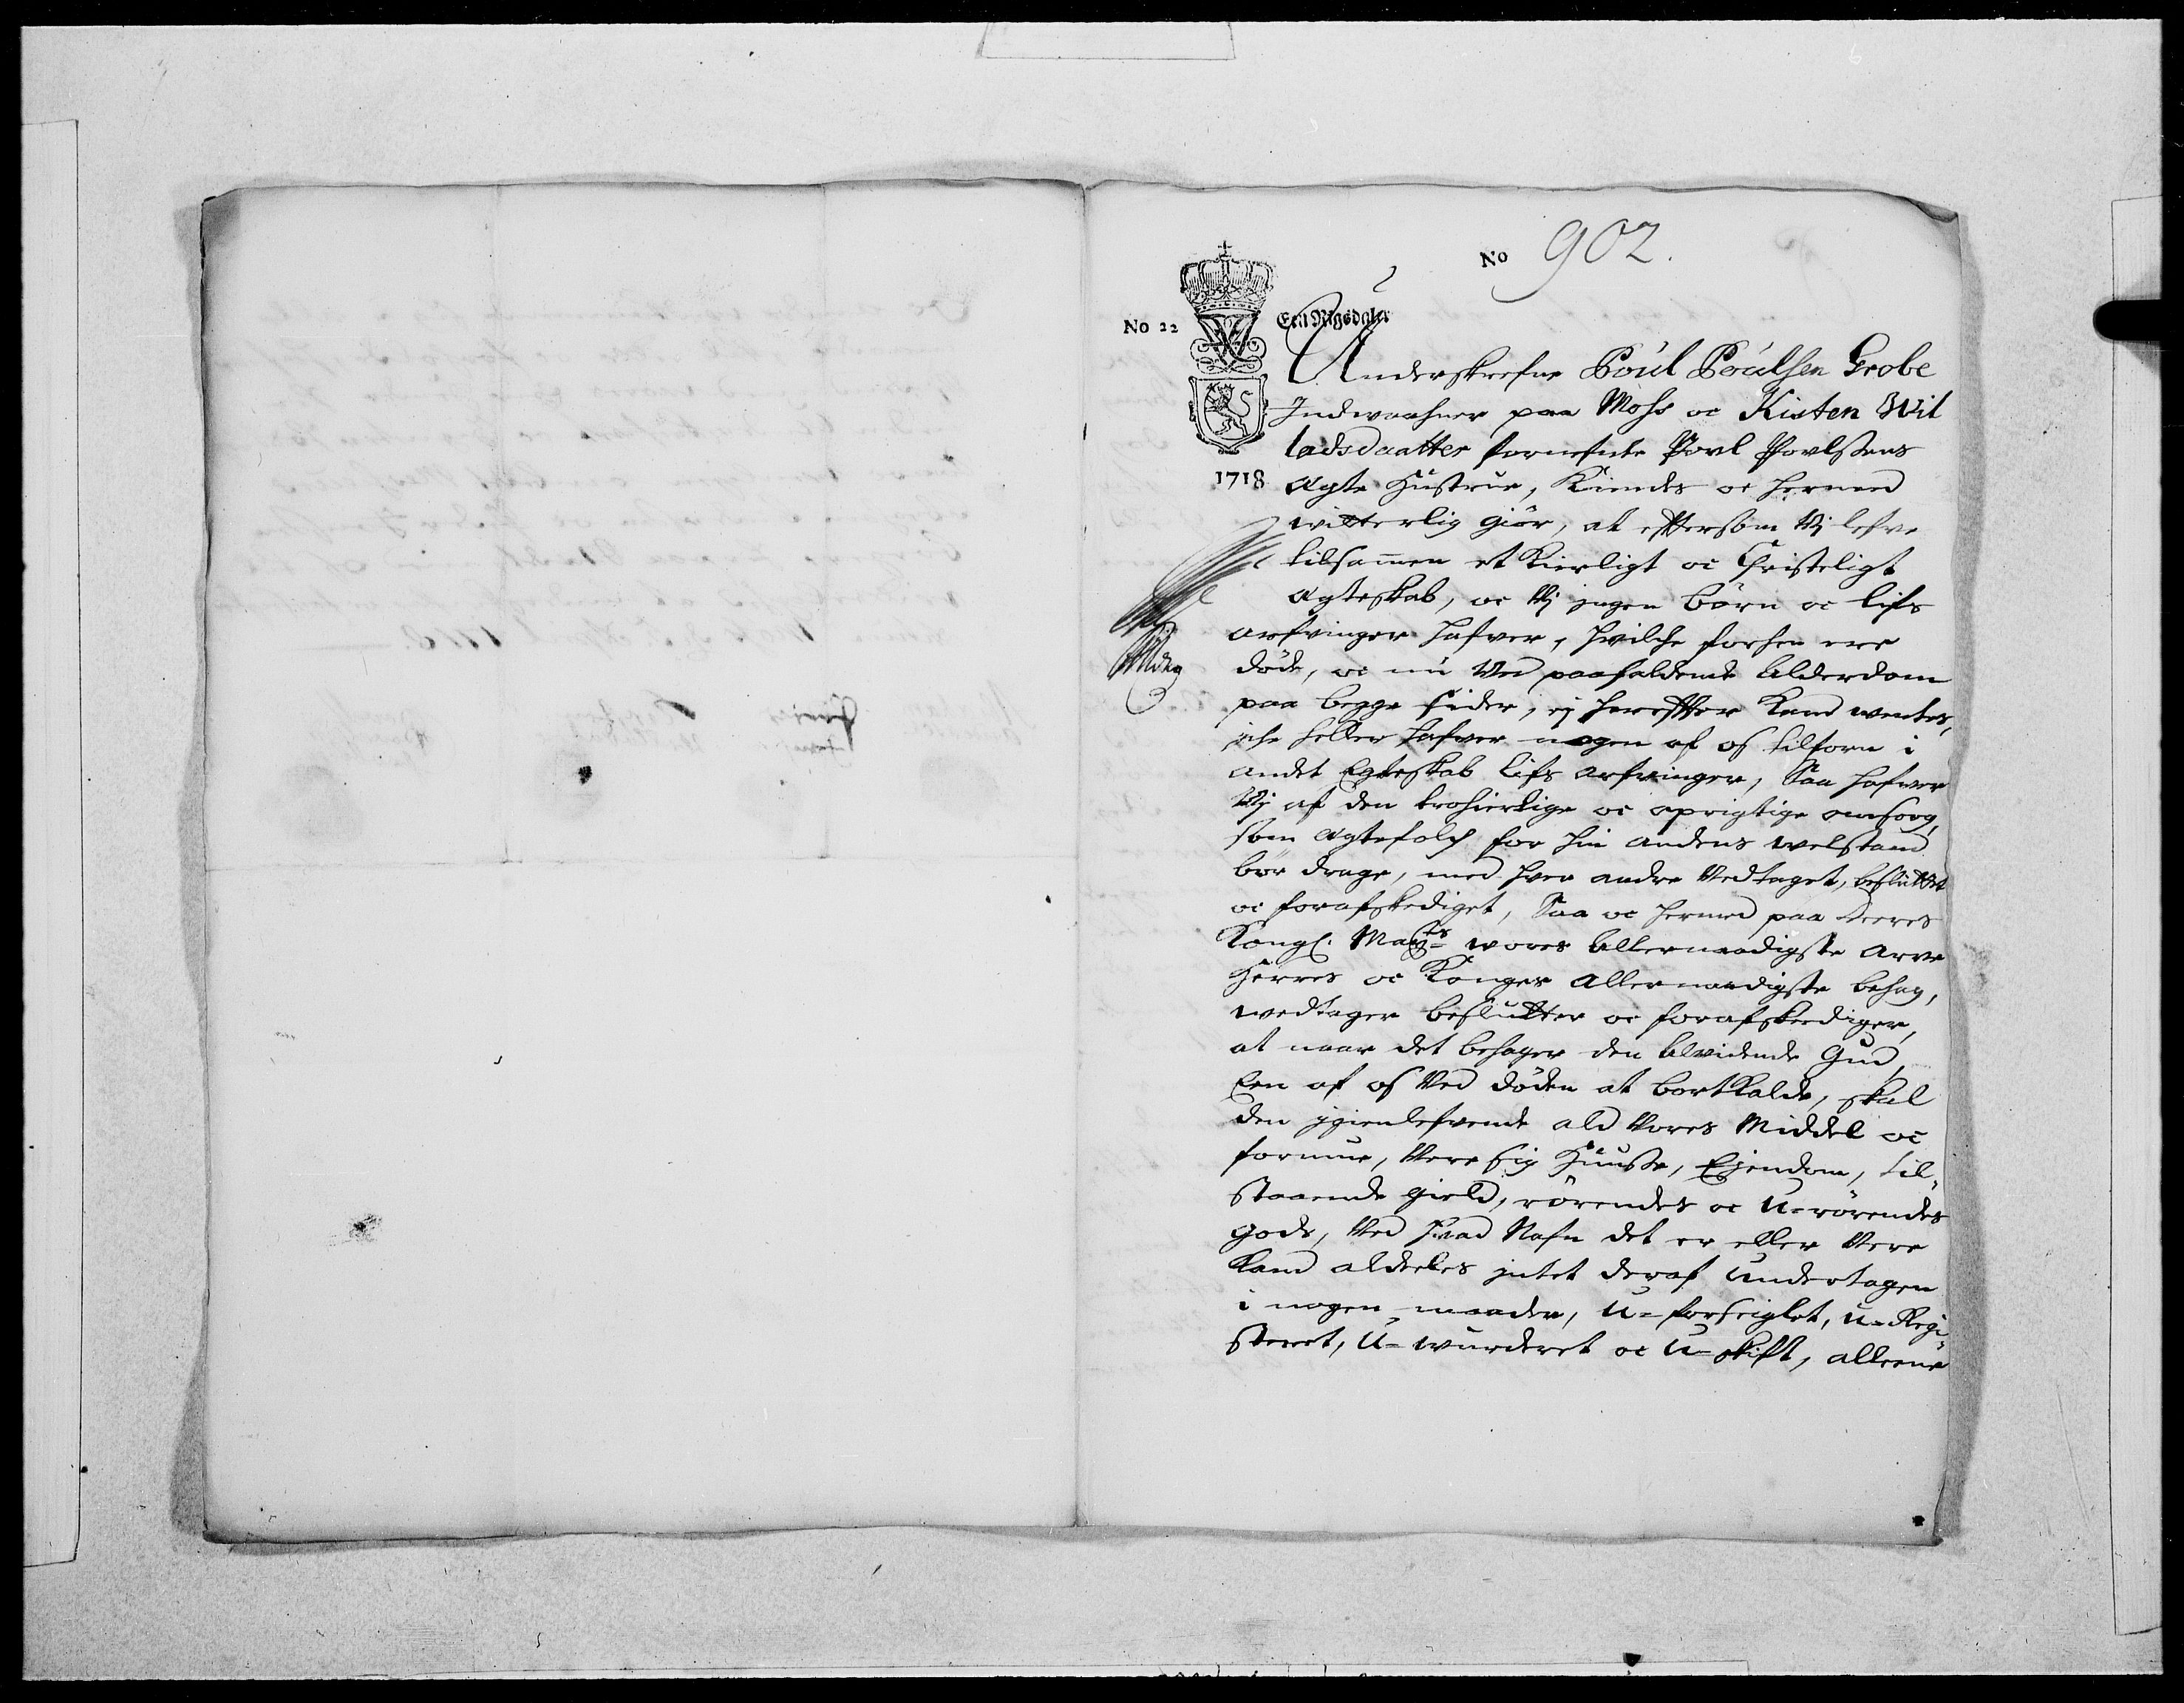 No 902.
No 22
Een Rigsdaler
1718
Underskrefne Poul Poulsen Grobe
Indwaahner paa Mohs oc Kisten Wil
ladsdaatter fornefnte Povl Povlsens
Agte Hustrue, Kiendes oc hermed
witterlig giör, at efftersom Vj lefve
tilsammen et Kierligt oc Christeligt
Agteskab, oc Vj ingen Börn oc lifs
arfvinger hafver, hvilche forhen ere
döde, oc nu Ved paafaldende Alderdom
paa begge sider, ej hereffter kand wentes,
iche heller hafver nogen af os tilforn i
andet Egteskab lifs arfvinger, Saa hafver
Vj af den trohiertige oc oprigtige omsorg,
som Agtefolch for hin andens welstand
bör drage, med hver andre Vedtaget, besluttet
oc forafskediget, Saa oc hermed paa Deres
Kongl. Mayts wores Allernaadigste Arve
Herres oc Konges Allernaadigste behag,
wedtager beslutter oc forafskediger,
at naar det behager den Alvidende Gud,
Een af os Ved döden at bortkalde, skal
den igienlefvende ald Vores Middel oc
formue, Vere sig Huusse, Ejendom, til-
staaende gield, rörendes oc U-rörendes
gods, Ved hvad Nafn det er eller Vere
kand aldeeles intet deraf Undertagen
i nogen maader, U-forseiglet, U-Regi-
steret, U-wurderet oc U-skift, alleene